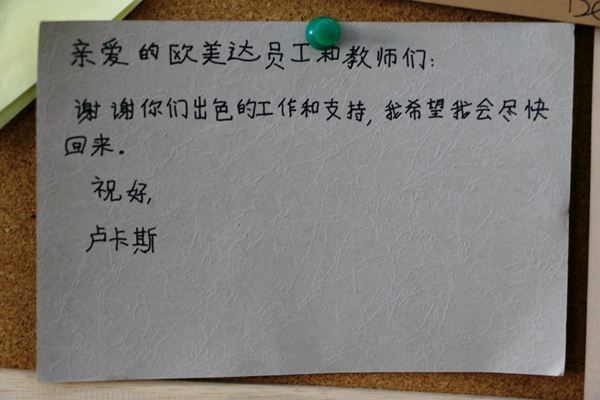 亲爱的欧美达员工和教师们:
谢谢你们出色的工作和支持,我希望我会尽快
回来.
祝好,
卢卡斯